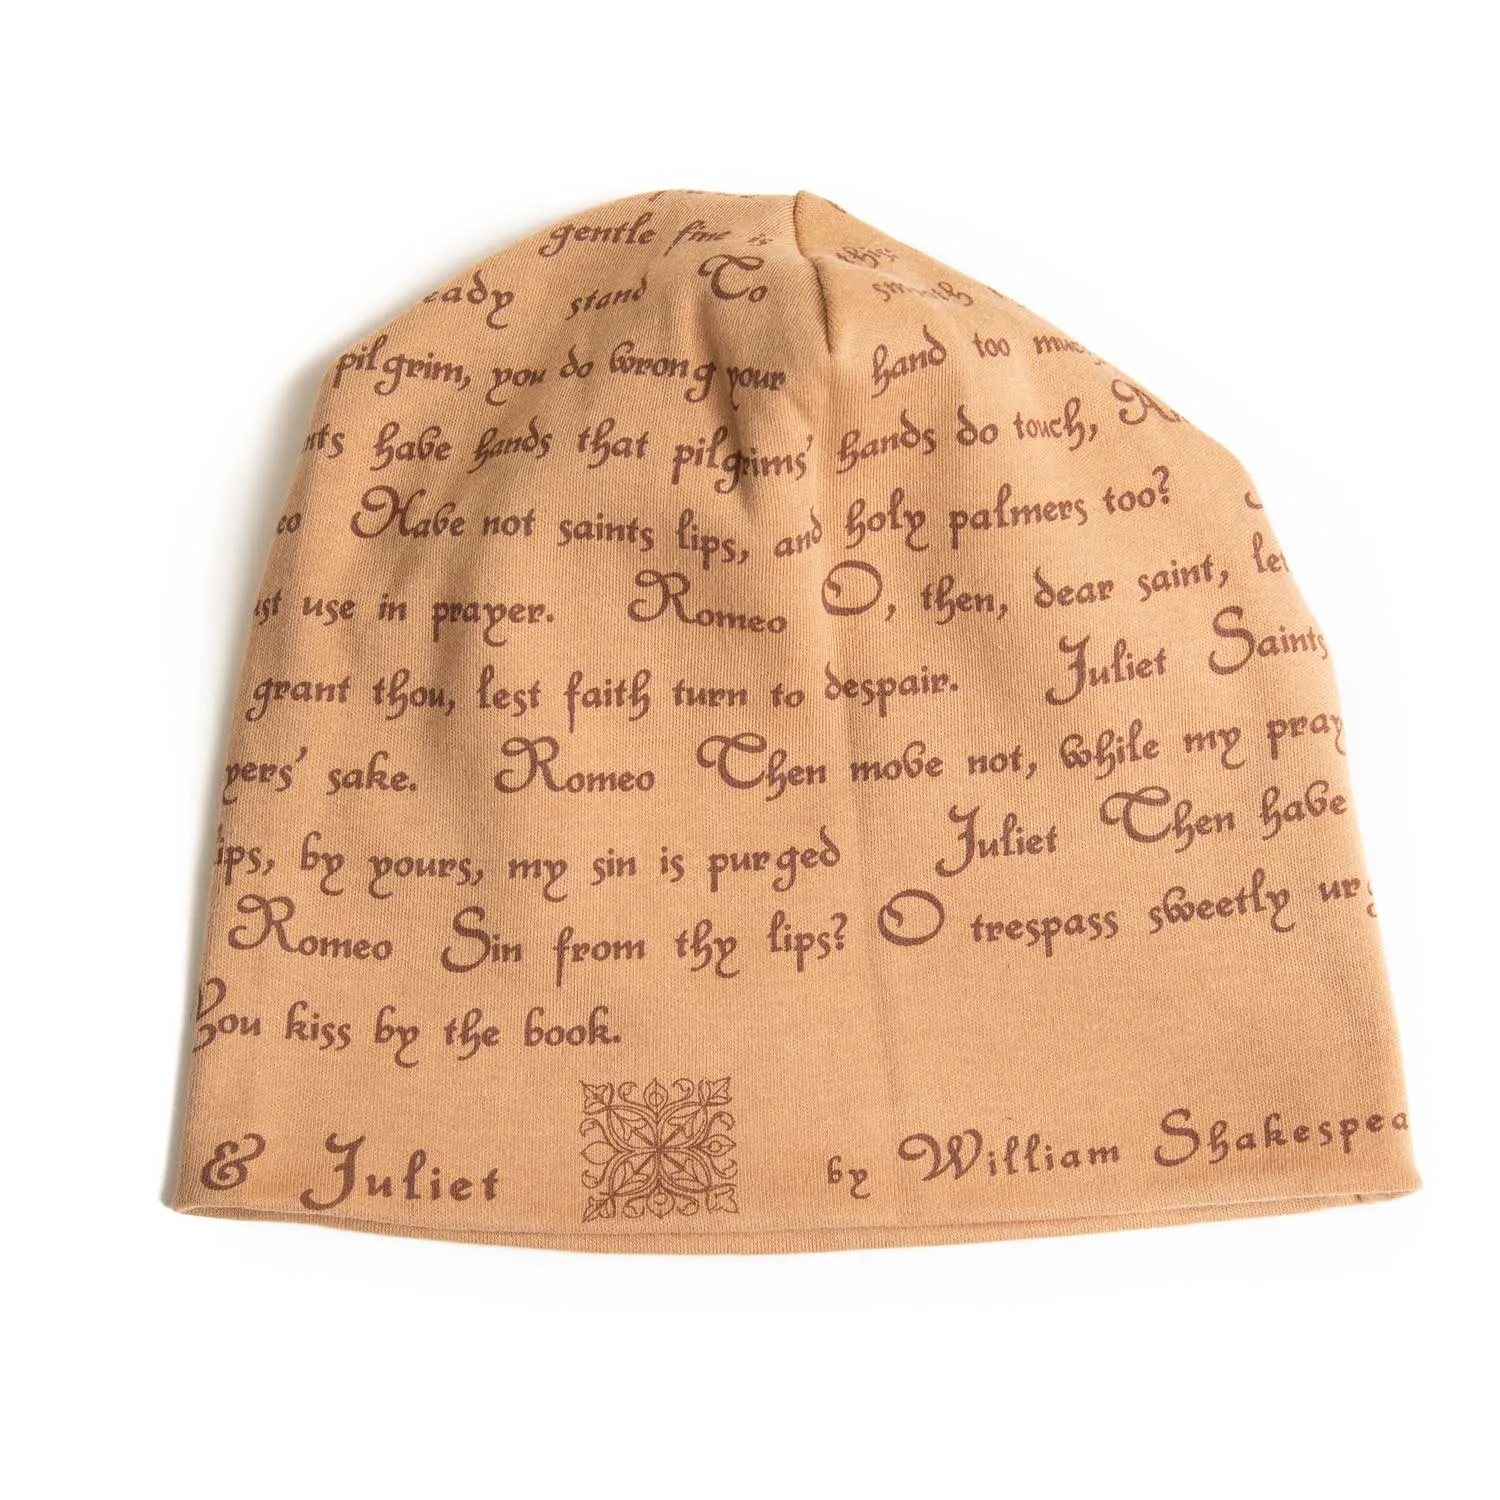 gentle fine is this:
eady stand To smooth
pilgrim, you do wrong your hand too much
nts have hands that pilgrims' hands do touch,
eo Have not saints lips, and holy palmers too?
ust use in prayer. Romeo O, then, dear saint, let
grant thou, lest faith turn to despair. Juliet Saints
yers' sake. Romeo Then move not, while my pray
ips, by yours, my sin is purged Juliet Then have
Romeo Sin from thy lips? O trespass sweetly urg
You kiss by the book.
& Juliet by William Shakespea